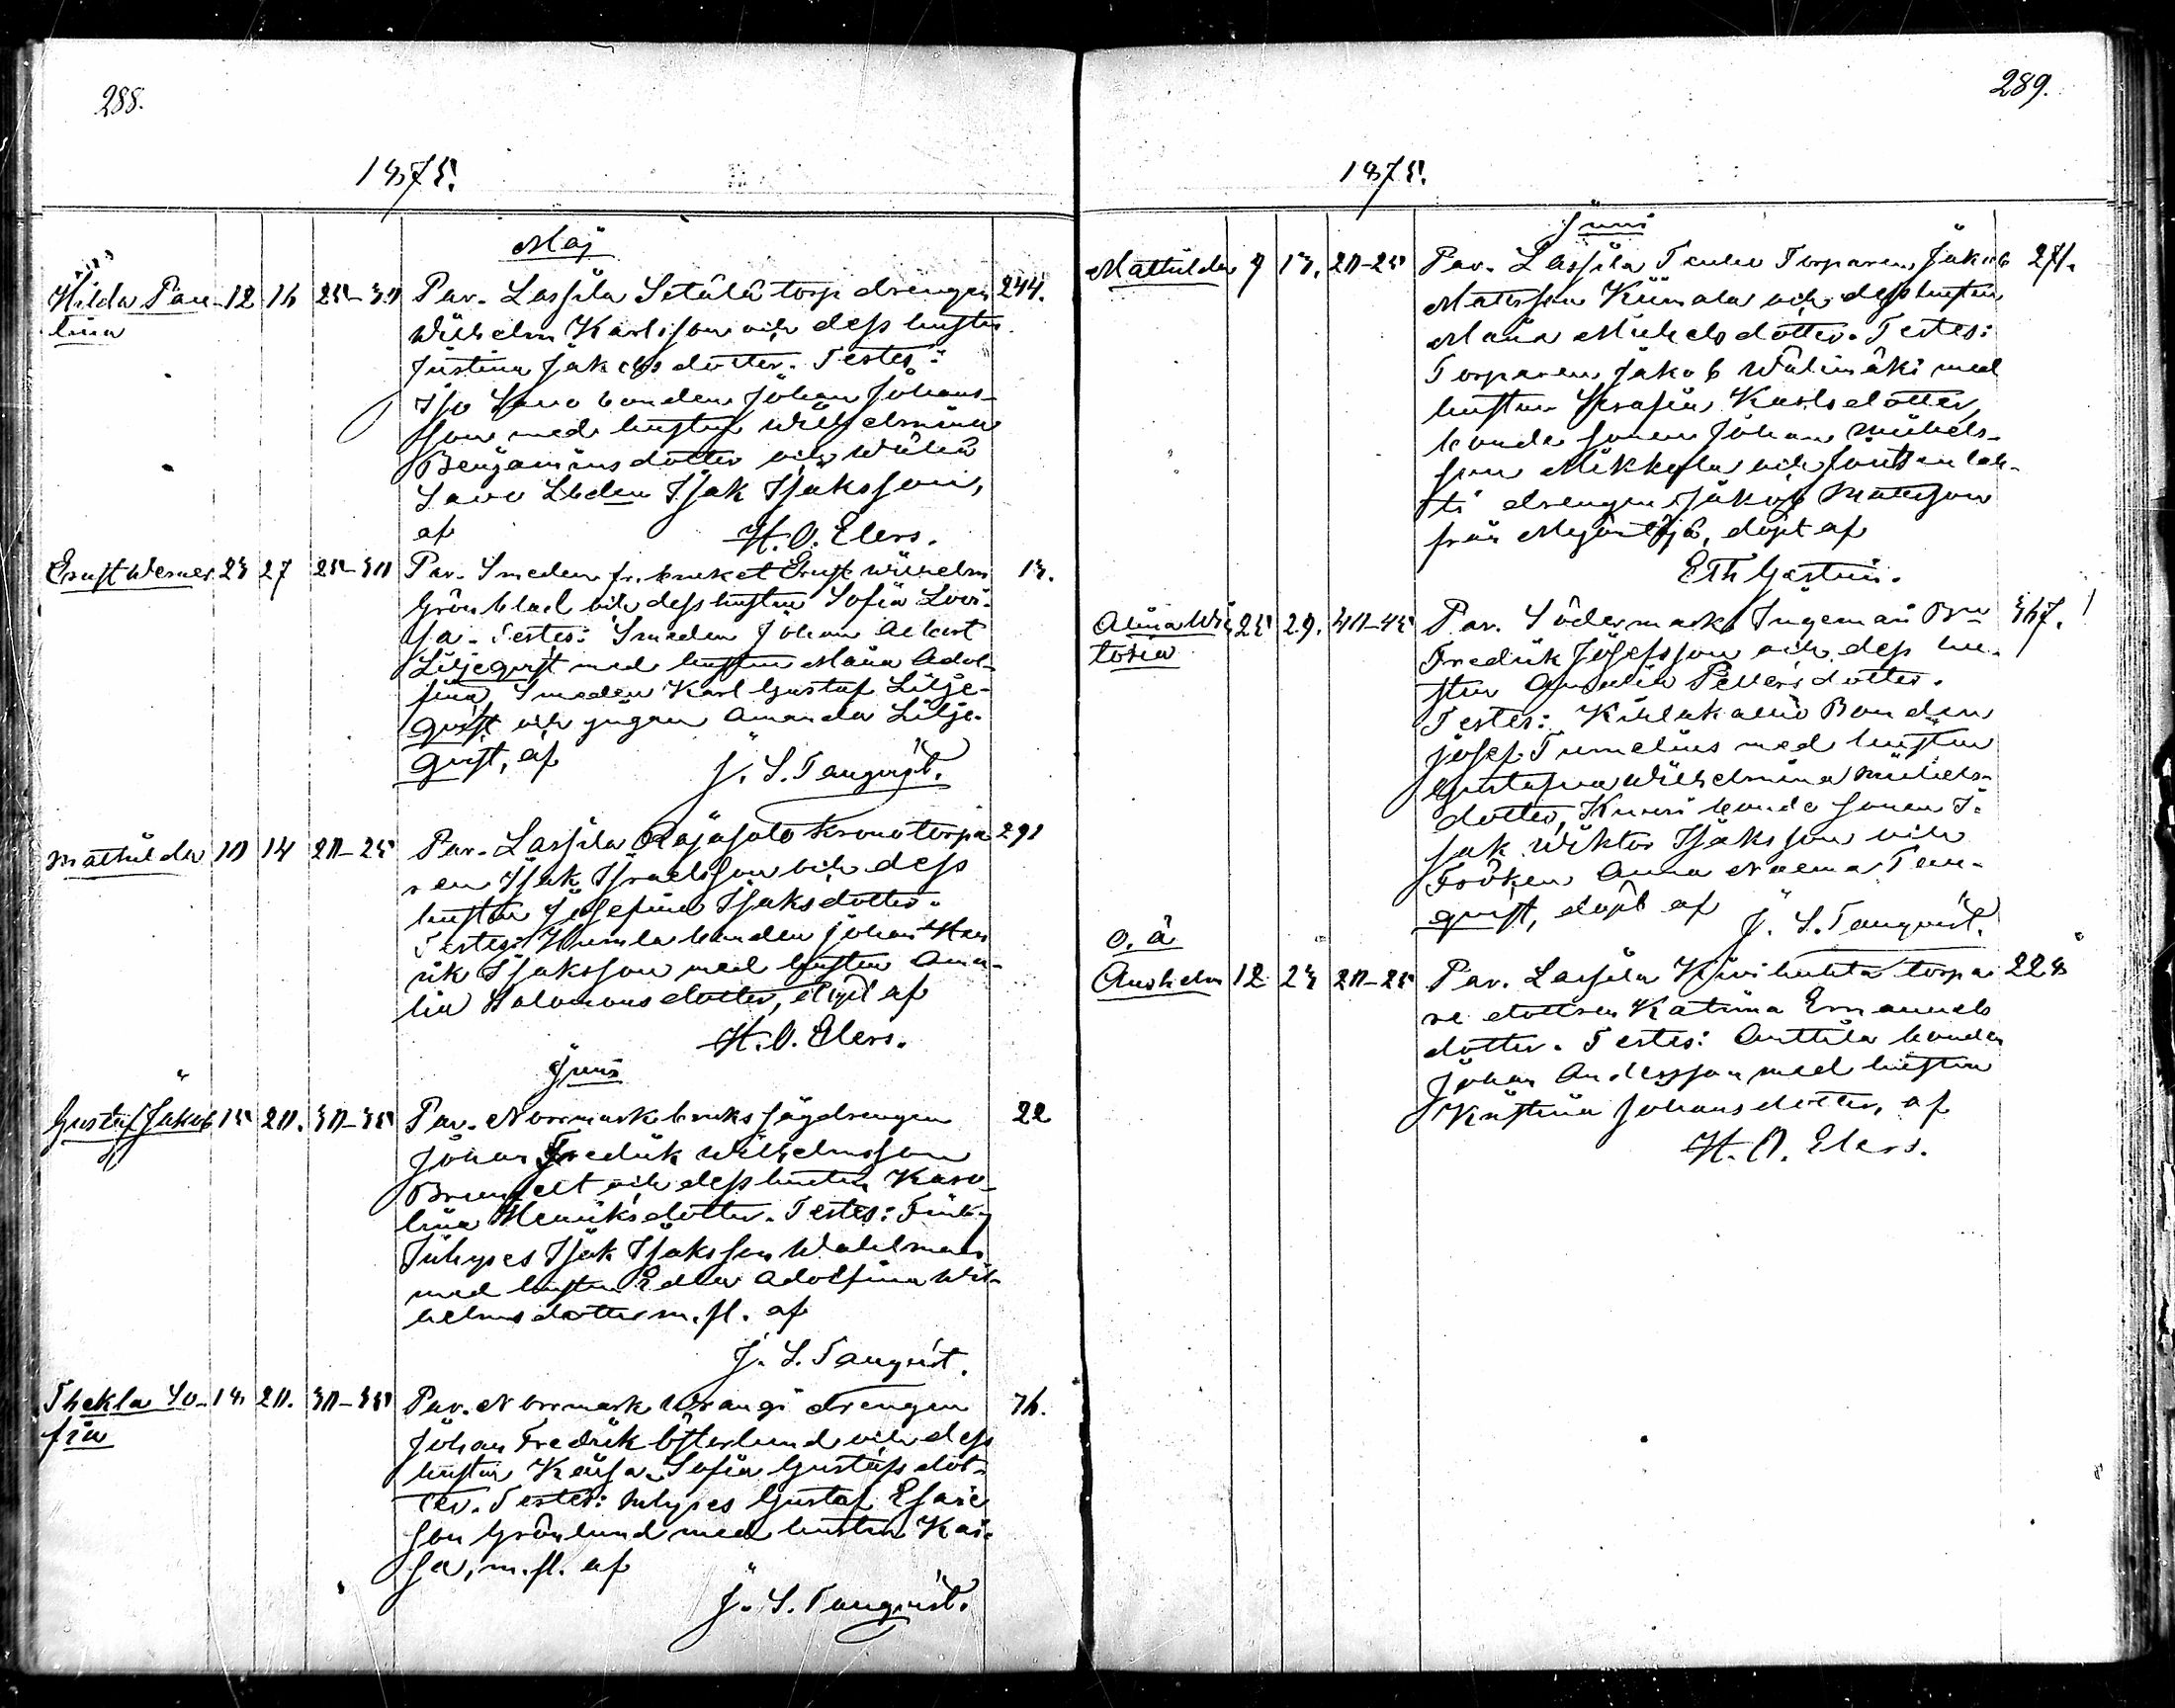 288.
1875.
Maj
Hilda Pau- 12 16 25-30 Par. Lassila Setälä torp drengen 244.
lina Wilhelm Karlsson och dess hustru
Justina Jakobsdotter. Testes:
Iso Savo bonden Johan Johans-
son med hustru Wilhelmina
Benjaminsdotter och Wähä
Savo Isak Isaksson,
af H. O. Elers.
Ernst Werner 23 27 25-30 Par. Smeden fr. bruket Ernst Wilhelm 13.
Grönblad och dess hustru Sofia Lovi-
sa. Testes: Smeden Johan Albert
Liljeqvist med hustru Maria Adol-
fina, Smeden Karl Gustaf Lilje-
qvist och pigan Amanda Lilje-
qvist, af J. S. Tanqvist.
Mathilda 10 14 20-25 Par. Lassila Rajasalo kronotorpa- 291
ren Isak Israelsson och dess
hustru Josefina Isaksdotter.
Testes: Humla bonden Johan Hen
rik Isaksson med hustru Ama-
lia Salomonsdotter, döpt af
H. O. Elers.
Juni
Gustaf Jakob 15 20. 30-35 Par. Norrmark bruks sågdrengen 22
Johan Fredrik Wilhelmsson
och dess hustru Karo-
lina Henriksdotter. Testes: Finby
Inhyses Isak Isaksson Wahlman
med hustru Edla Adolfina Wil-
helmsdotter m. fl. af
J. S. Tanqvist.
Thekla So- 18 20. 30-35 Par. Norrmark Wrangi drengen 76.
fia Johan Fredrik Österlund och dess
hustru Kajsa Sofia Gustafsdot-
ter. Testes: Inhyses Gustaf Esaie
son Grönlund med hustru Kai-
sa, m. fl. af
J. S. Tanqvist.
289.
1875.
Juni
Mathilda 9 13. 20-25 Par. Lassila Torparen Jakob 271.
Matsson och dess hustru
Maria Michelsdotter. Testes:
Torparen Jakob Wälimäki med
hustru Serafia Karlsdotter,
bonde sonen Johan Michels-
son Mikkola och Joutsenlah-
ti drengen Jakob Mattsson
från, döpt af
E Th Gestrin.
Alina Wik 25 29. 40-45 Par. Södermark Ingemari Bn 367.
toria Fredrik Josefsson och dess hu-
stru Amalia Pettersdotter.
Testes: Kihlakallio Bonden
Josef Tumelius med hustru
Gustafva Wilhelmina Michels-
dotter, Knuusi bonde sonen I-
sak Wiktor Isaksson och
Fröken Anna Naema Tan-
qvist, döpt af J. S. Tanqvist.
o. ä
Anshelm 12 23 20-25 Par. Lassila Kivihuhta torpa- 228
re dottren Katrina Emanuels
dotter. Testes: Anttila bonden
Johan Andersson med hustru
Kristina Johansdotter, af
H. O. Elers.